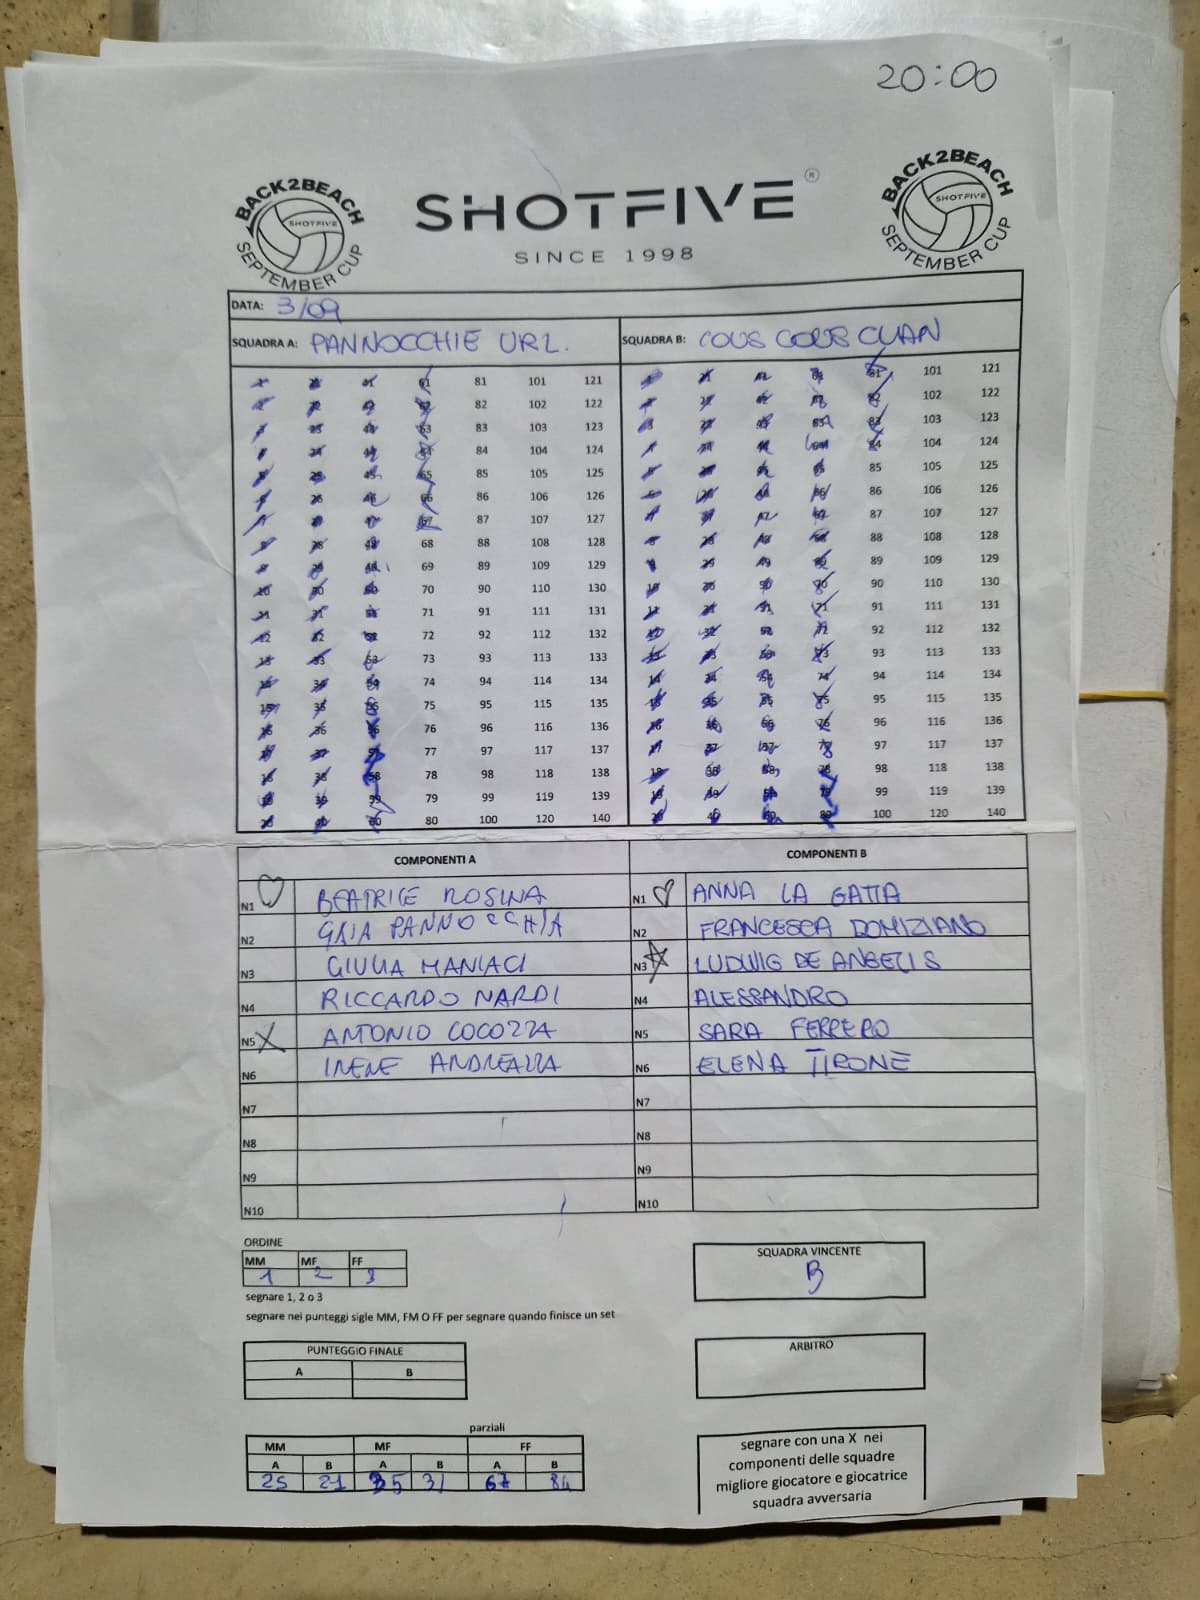 20:00
BACK2BEACH
SHOTFIVE
SEPTEMBER CUP
SHOTFIVE ®
SINCE 1998
BACK2BEACH
SHOTFIVE
SEPTEMBER CUP
DATA: 3/09
SQUADRA A: PANNOCCHIE URL. SQUADRA B: COUS COUS CLAN
1 21 41 61 81 101 121 1 21 42 61 81 101 121
2 22 42 62 82 102 122 2 22 42 62 82 102 122
3 23 43 63 83 103 123 3 23 43 63 83 103 123
4 24 44 64 84 104 124 4 24 44 64 84 104 124
5 25 45 65 85 105 125 5 25 45 65 85 105 125
6 26 46 66 86 106 126 6 26 46 66 86 106 126
7 27 47 67 87 107 127 7 27 47 67 87 107 127
8 28 48 68 88 108 128 8 28 48 68 88 108 128
9 29 49 69 89 109 129 9 29 49 69 89 109 129
10 30 50 70 90 110 130 10 30 50 70 90 110 130
11 31 51 71 91 111 131 11 31 51 71 91 111 131
12 32 52 72 92 112 132 12 32 52 72 92 112 132
13 33 53 73 93 113 133 13 33 53 73 93 113 133
14 34 54 74 94 114 134 14 34 54 74 94 114 134
15 35 55 75 95 115 135 15 35 55 75 95 115 135
16 36 56 76 96 116 136 16 36 56 76 96 116 136
17 37 57 77 97 117 137 17 37 57 77 97 117 137
18 38 58 78 98 118 138 18 38 58 78 98 118 138
19 39 59 79 99 119 139 19 39 59 79 99 119 139
20 40 60 80 100 120 140 20 40 60 80 100 120 140
COMPONENTI A COMPONENTI B
N1 BEATRICE ROSINA N1 ANNA LA GATTA
N2 GAIA PANNOCCHIA N2 FRANCESCA DOMIZIANO
N3 GIULIA MANIACI N3 LUDWIG DE ANGELIS
N4 RICCARDO NARDI N4 ALESSANDRO
N5 X ANTONIO COCOZZA N5 SARA FERRERO
N6 IRENE ANDREAZZA N6 ELENA TIRONE
N7 N7
N8 N8
N9 N9
N10 N10
ORDINE
MM MF FF
1 2 3
segnare 1, 2 o 3
segnare nei punteggi sigle MM, FM O FF per segnare quando finisce un set
SQUADRA VINCENTE
B
PUNTEGGIO FINALE
A B
ARBITRO
parziali
MM MF FF
A B A B A B
25 21 35 31 67 84
segnare con una X nei
componenti delle squadre
migliore giocatore e giocatrice
squadra avversaria